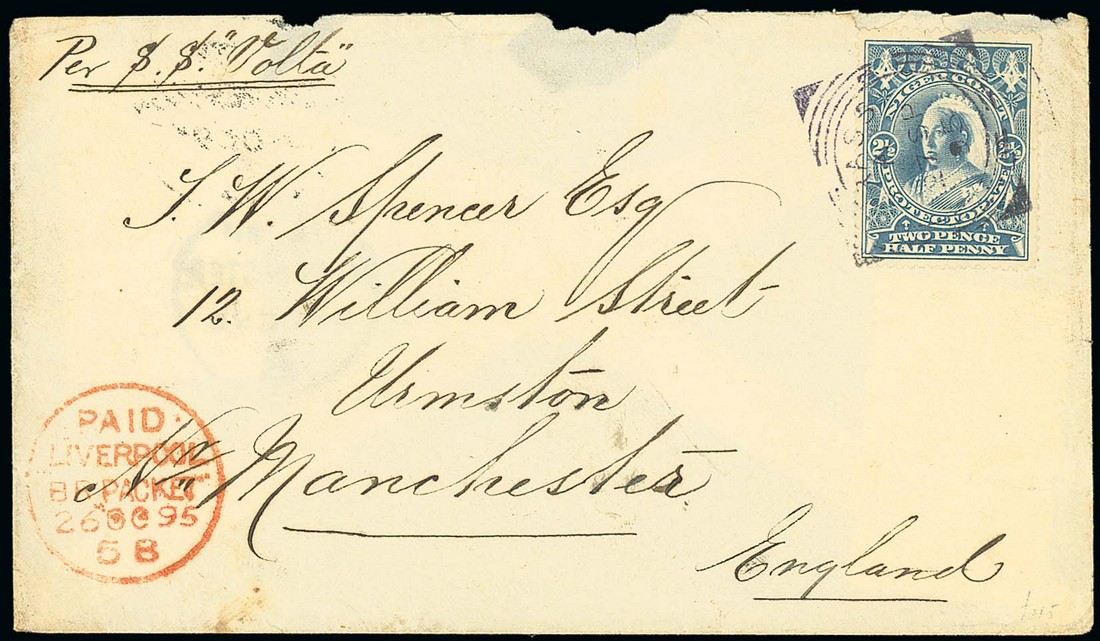 Per S.S. "Volta"
NIGER COAST
2½ 2½
PROTECTORATE
TWO PENCE
HALF PENNY
J. W. Spencer Esq
12. William Street
Urmston
Nr Manchester
England
PAID
LIVERPOOL
BR. PACKET
26 OC 95
5 B